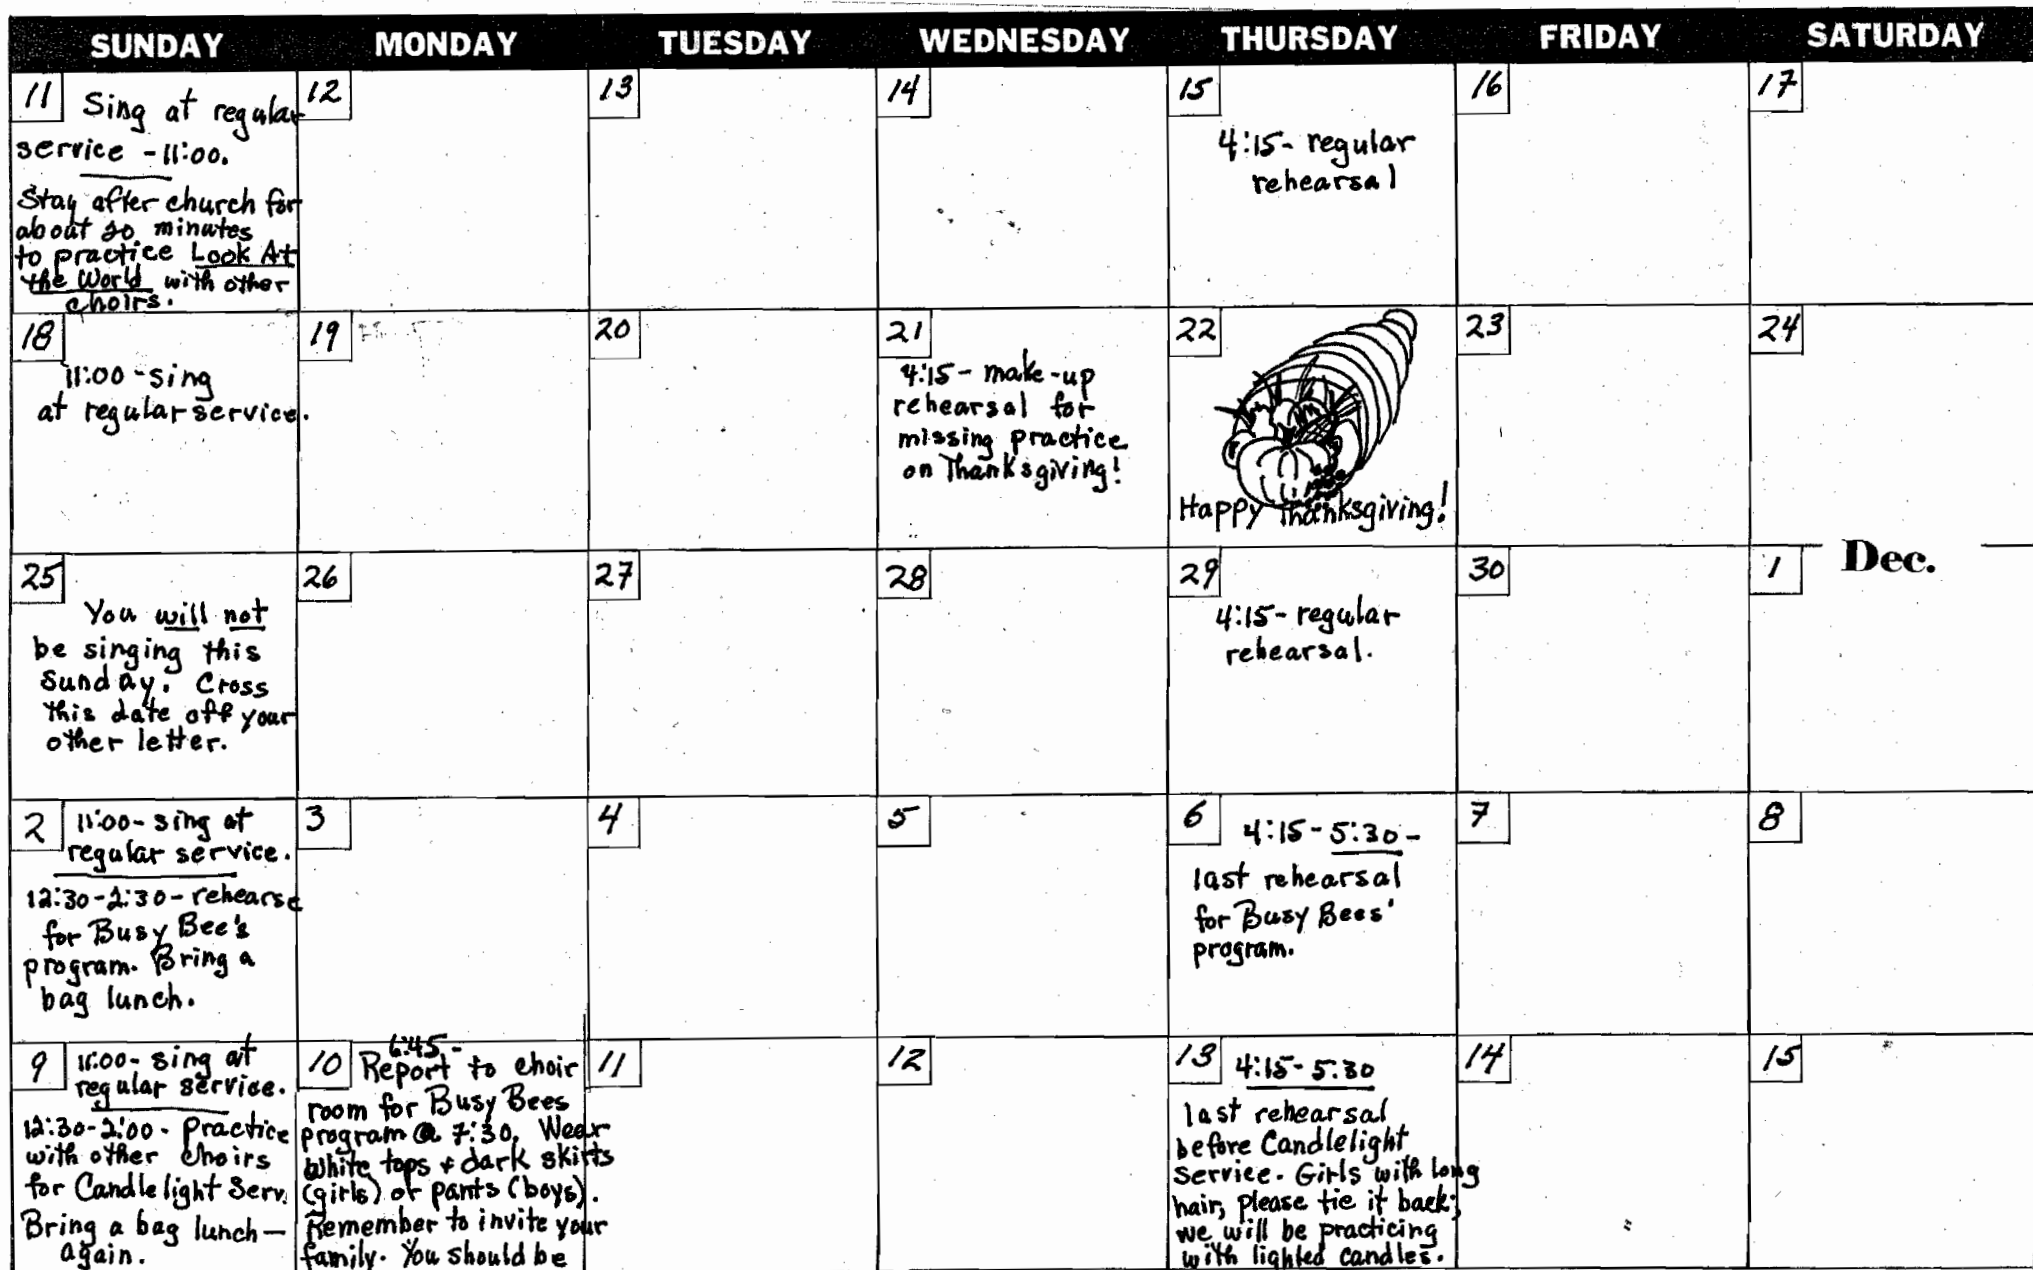 SUNDAY MONDAY TUESDAY WEDNESDAY THURSDAY FRIDAY SATURDAY
11 Sing at regular
service - 11:00.
Stay after church for
about 20 minutes
to practice Look At
the World with other
choirs.
12
13
14
15
4:15- regular
rehearsal
16
17
18
11:00 - sing
at regular service.
19
20
21
4:15 - make-up
rehearsal for
missing practice
on Thanksgiving!
22
Happy Thanksgiving!
23
24
25
You will not
be singing this
Sunday. Cross
this date off your
other letter.
26
27
28
29
4:15- regular
rehearsal.
30
Dec.
1
2 11:00- sing at
regular service.
12:30-2:30- rehearse
for Busy Bee's
program. Bring a
bag lunch.
3
4
5
6 4:15-5:30-
last rehearsal
for Busy Bees'
program.
7
8
9 11:00- sing at
regular service.
12:30-2:00- Practice
with other Choirs
for Candlelight Serv.
Bring a bag lunch—
again.
10 6:45-
Report to choir
room for Busy Bees
program @ 7:30. Wear
white tops + dark skirts
(girls) or pants (boys).
Remember to invite your
family. You should be
11
12
13 4:15-5:30
last rehearsal
before Candlelight
Service. Girls with long
hair, please tie it back;
we will be practicing
with lighted candles.
14
15